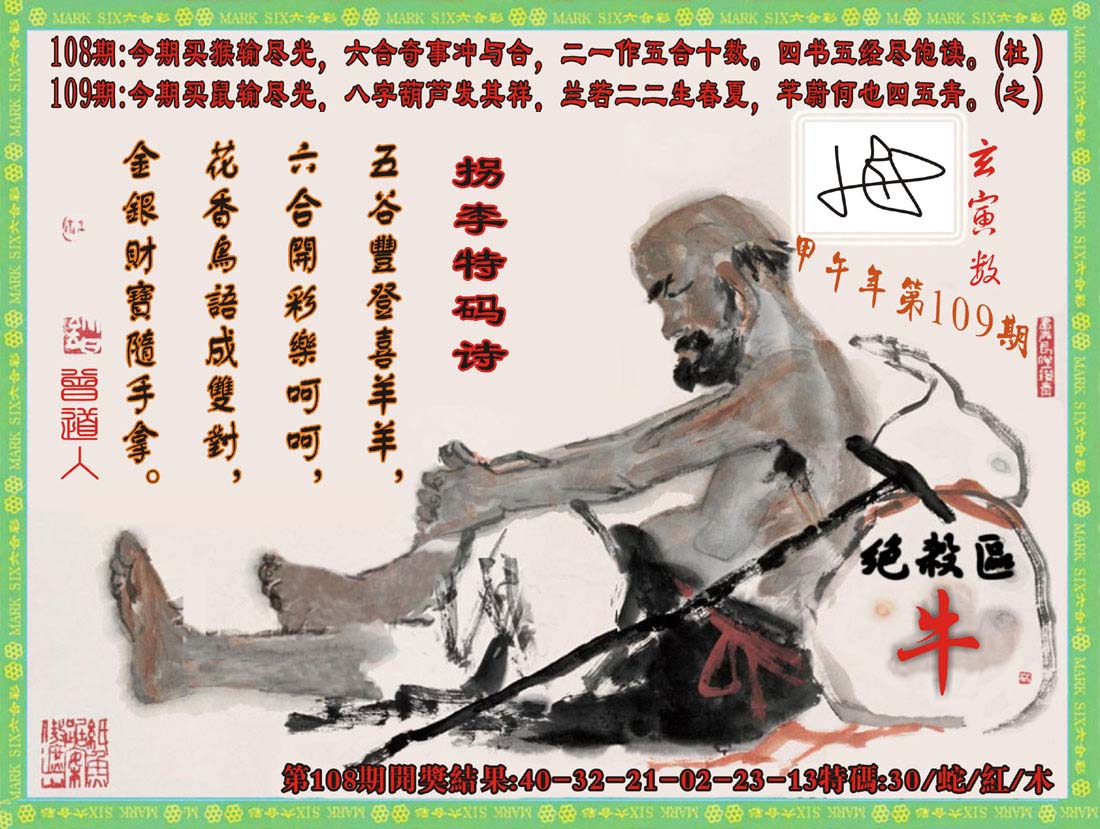 MARK SIX六合彩
108期:今期买猴输尽光，六合奇事冲与合，二一作五合十数。四书五经尽饱读。(杜)
109期:今期买鼠输尽光，八字葫芦发其祥，兰若二二生春夏，芊蔚何也四五青。(之)
玄寅数
甲午年第109期
拐李特码诗
五谷豐登喜羊羊，
六合開彩樂呵呵，
花香鳥語成雙對，
金銀財寶隨手拿。
曾道人
绝殺區
牛
第108期開獎結果:40-32-21-02-23-13特碼:30/蛇/紅/木